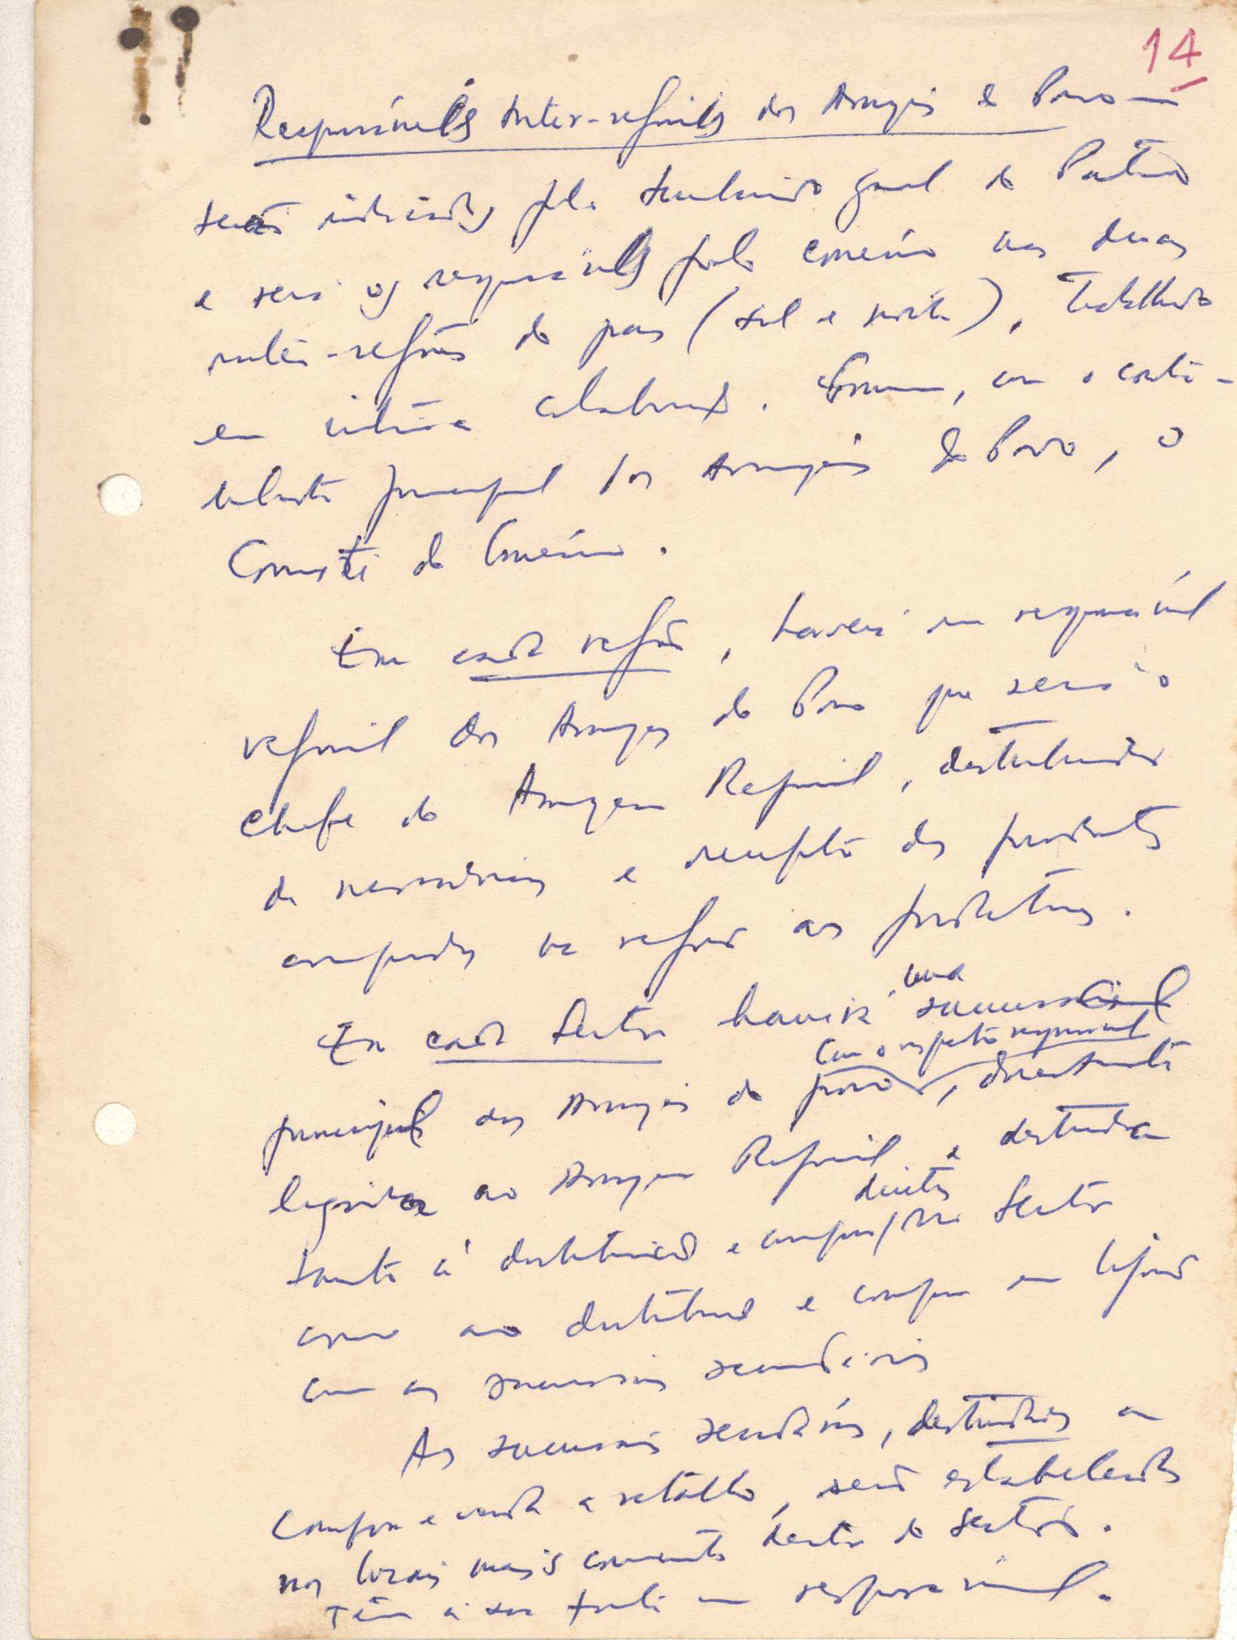 14
Responsáveis Inter-regionais dos Armazéns do Povo —
serão indicados pelo Secretariado Geral do Partido
e serão os responsáveis pelo comércio nas duas
inter-regiões do país (sul e norte), trabalhando
em íntima colaboração. com o conti-
principal dos Armazéns do Povo, o
Comité do Comércio.
Em cada região, haverá um responsável
regional dos Armazéns do Povo que será o
chefe do Armazém Regional, distribuidor
de mercadorias e receptor dos produtos
comprados na região aos produtores.
Em cada sector haverá uma sucursal
principal dos Armazéns do povo, com o respectivo responsável, directamente
ligada ao Armazém Regional e destinada
tanto à distribuição e compras directas no Sector
como ao distribuição e compra em ligação
com as sucursais secundárias
As sucursais secundárias, destinadas a
compra e venda a retalho, serão estabelecidas
nos locais mais convenientes dentro do sector.
Têm à sua frente um responsável.